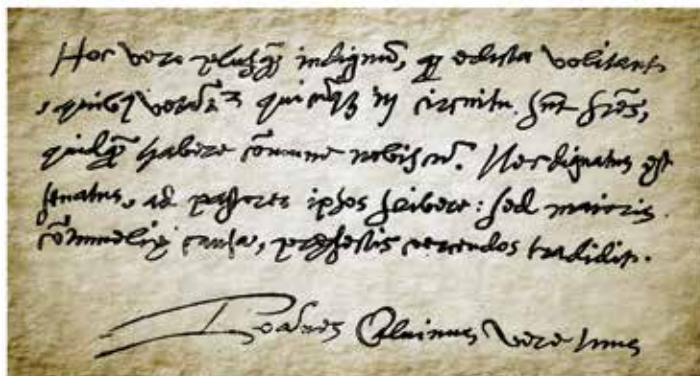 Hoc vero plusqȝ indignū, qđ edicta volitant
, quibꝯ vetāt² quicūqȝ in circuitu sūt frēs,
quidqȝ habere cōmune nobiscū. Nec dignatus est
senatus, ad pastores ipsos scribere: sed maioris
cōtumeliȩ causa, pręfectis arcendos tradidit.
Ioannes Caluinus vere tuus